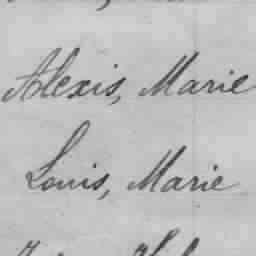 Alexis, Marie
Louis, Marie